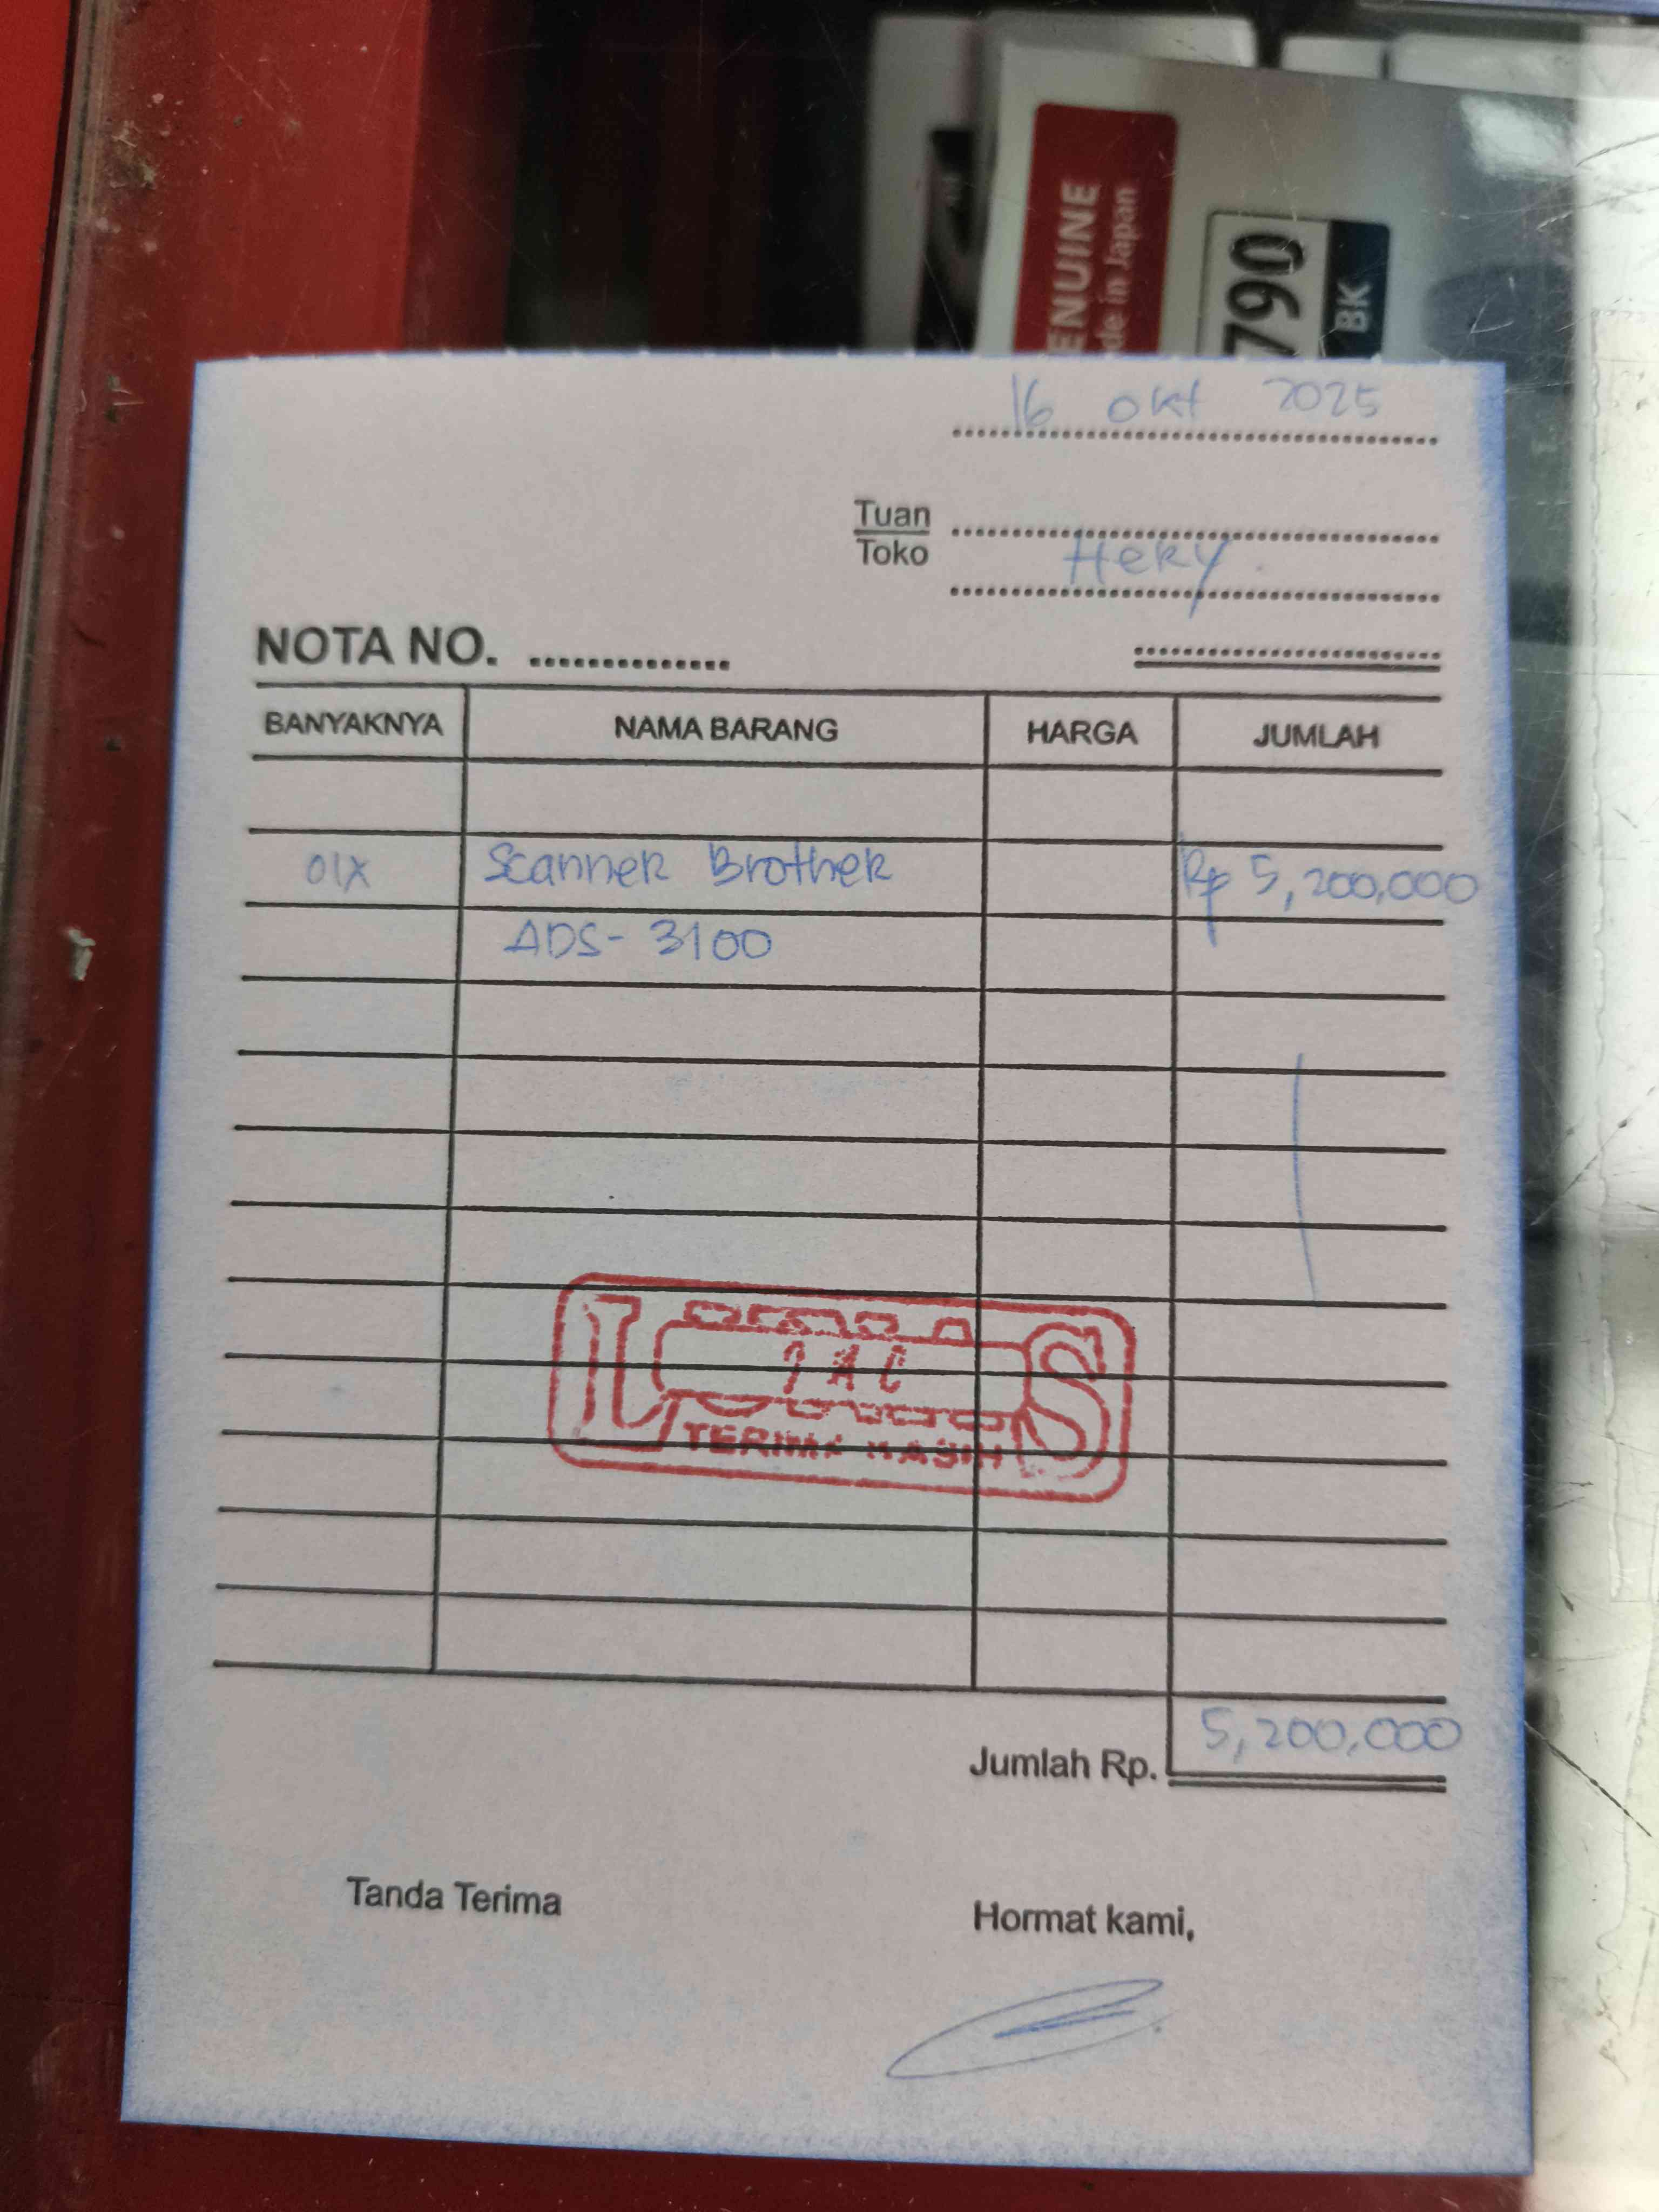 ENUINE
de in Japan
790
BK
16 Okt 2025
Tuan
Toko
Heky
NOTA NO. ..............
BANYAKNYA NAMA BARANG HARGA JUMLAH
01X Scanner Brother Rp 5,200,000
ADS-3100
TERIMA KASIH
Jumlah Rp. 5,200,000
Tanda Terima
Hormat kami,